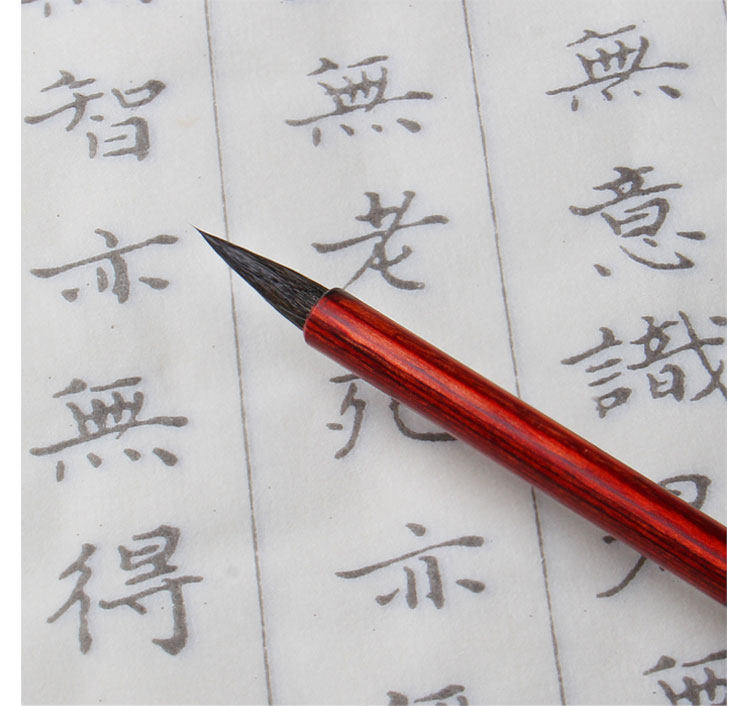 無意識無
無老死亦
智亦無得